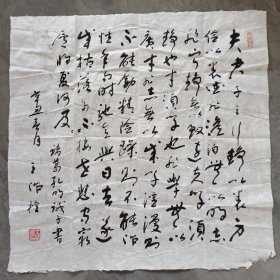 夫君子之行静以养身
俭以养德非澹泊无以明志
非宁静无以致远夫学须
静也才须学也非学无以
广才非志无以成学淫慢则
不能励精险躁则不能治
性年与时驰意与日去遂
成枯落多不接世悲守穷
庐将复何及 诸葛孔明诫子书
辛丑春月 王